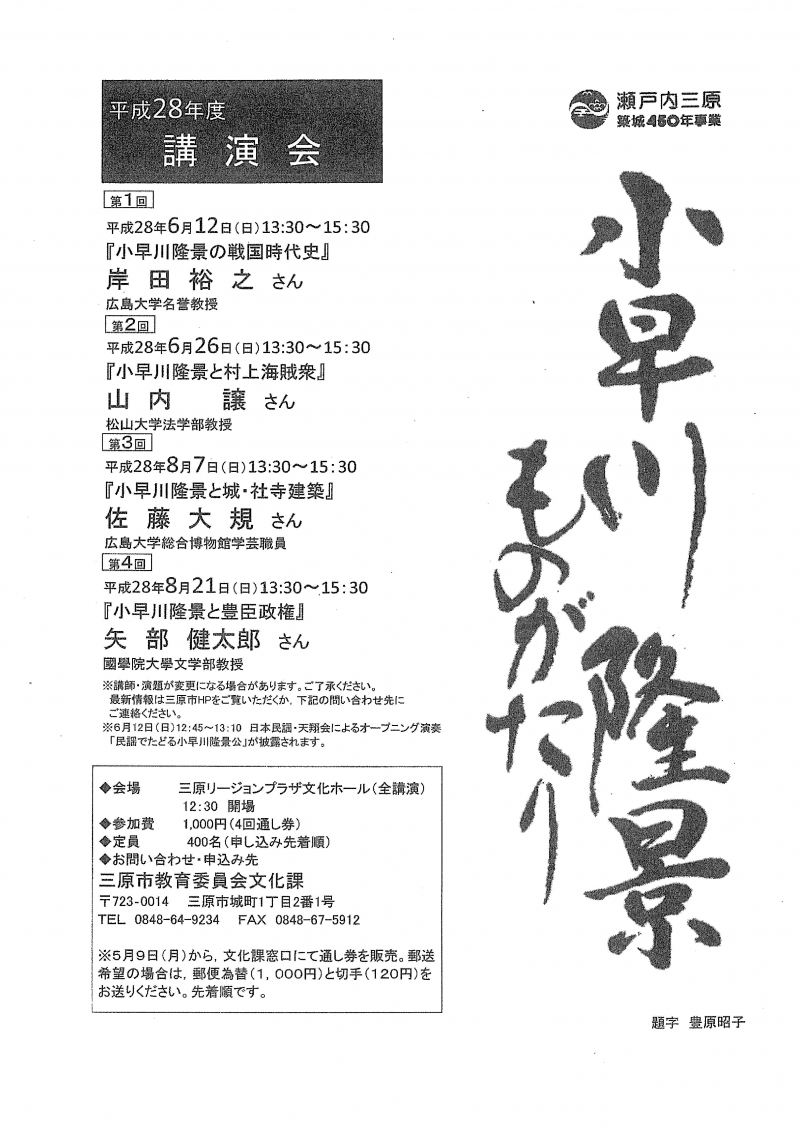 平成28年度
講演会
瀬戸内三原
築城450年事業
小早川隆景
ものがたり
第1回
平成28年6月12日(日)13:30～15:30
『小早川隆景の戦国時代史』
岸田裕之 さん
広島大学名誉教授
第2回
平成28年6月26日(日)13:30～15:30
『小早川隆景と村上海賊衆』
山内 譲 さん
松山大学法学部教授
第3回
平成28年8月7日(日)13:30～15:30
『小早川隆景と城・社寺建築』
佐藤大規 さん
広島大学総合博物館学芸職員
第4回
平成28年8月21日(日)13:30～15:30
『小早川隆景と豊臣政権』
矢部 健太郎 さん
國學院大學文学部教授
※講師・演題が変更になる場合があります。ご了承ください。
最新情報は三原市HPをご覧いただくか，下記の問い合わせ先に
ご連絡ください。
※6月12日(日)12:45～13:10 日本民謡・天翔会によるオープニング演奏
「民謡でたどる小早川隆景公」が披露されます。
◆会場 三原リージョンプラザ文化ホール(全講演)
12:30 開場
◆参加費 1,000円(4回通し券)
◆定員 400名(申し込み先着順)
◆お問い合わせ・申込み先
三原市教育委員会文化課
〒723-0014 三原市城町1丁目2番1号
TEL 0848-64-9234 FAX 0848-67-5912
※5月9日(月)から，文化課窓口にて通し券を販売。郵送
希望の場合は，郵便為替(1，000円)と切手(120円)を
お送りください。先着順です。
題字 豊原昭子